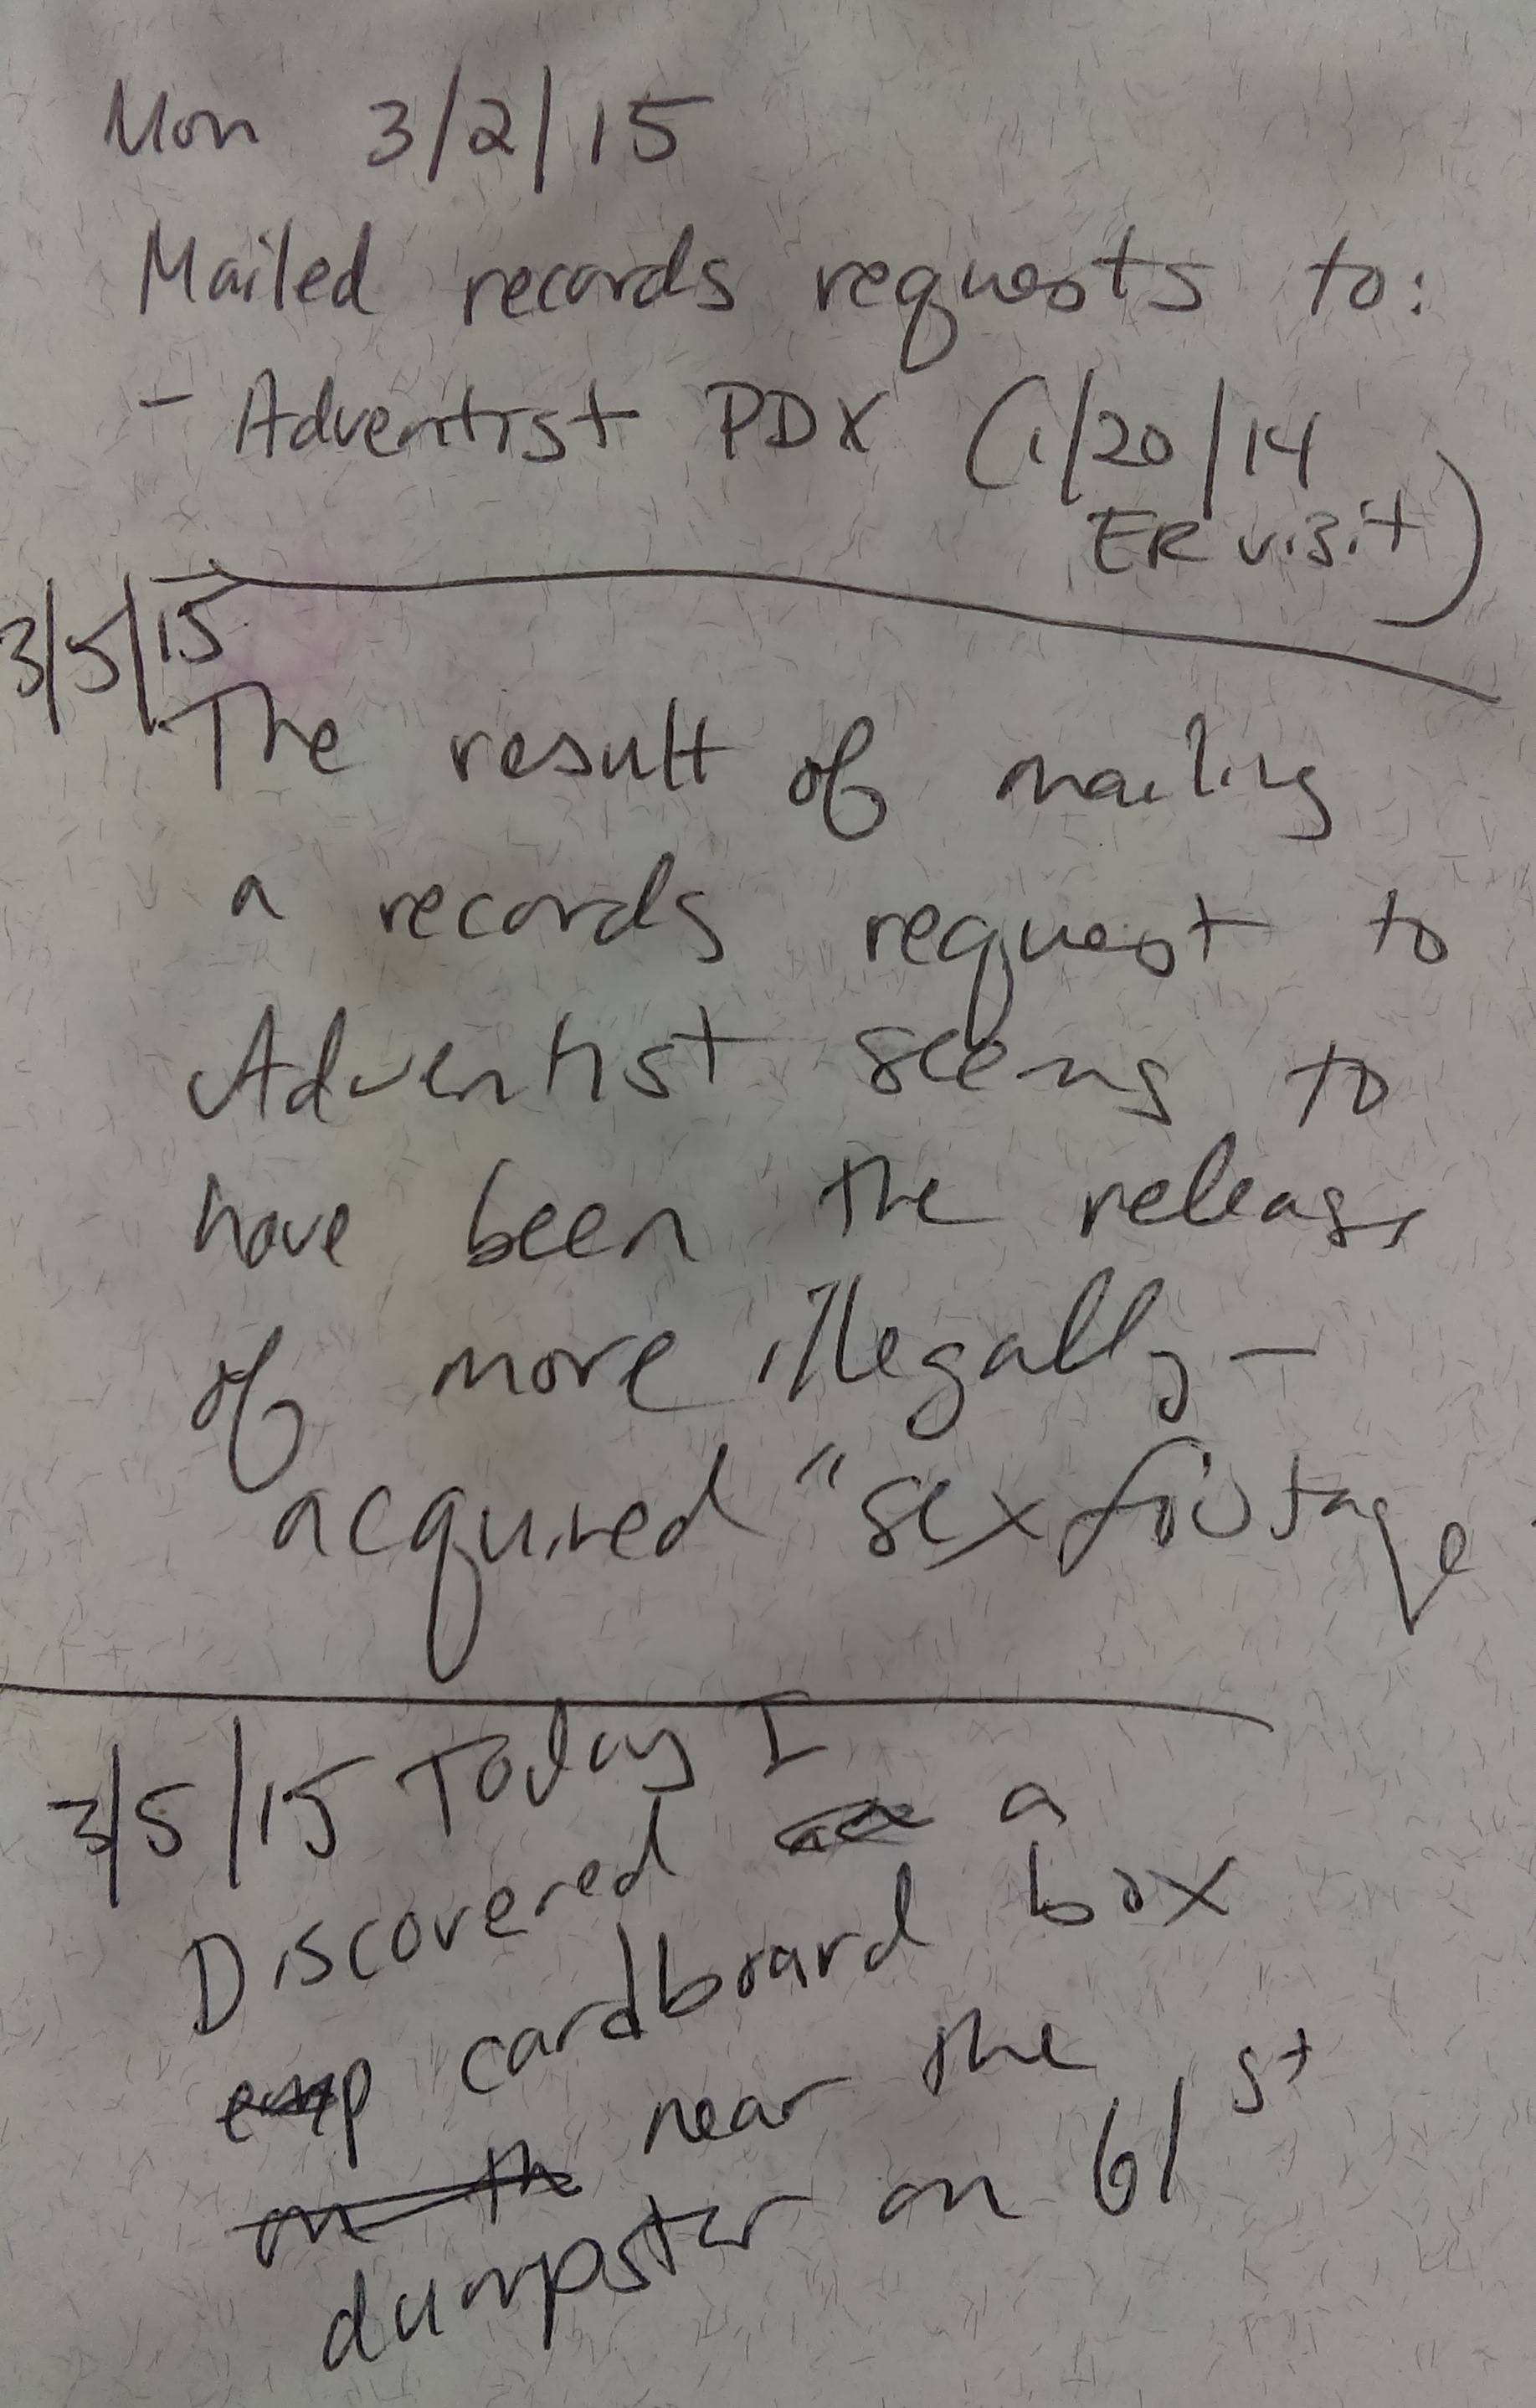 Mon 3/2/15
Mailed records requests to:
- Adventist PDX (1/20/14
ER visit)
3/5/15
The result of mailing
a records request to
Adventist seems to
have been the release
of more illegally-
acquired "sex footage
3/5/15 Today I
Discovered a
emp cardboard box
on th near the
dumpster on 61st